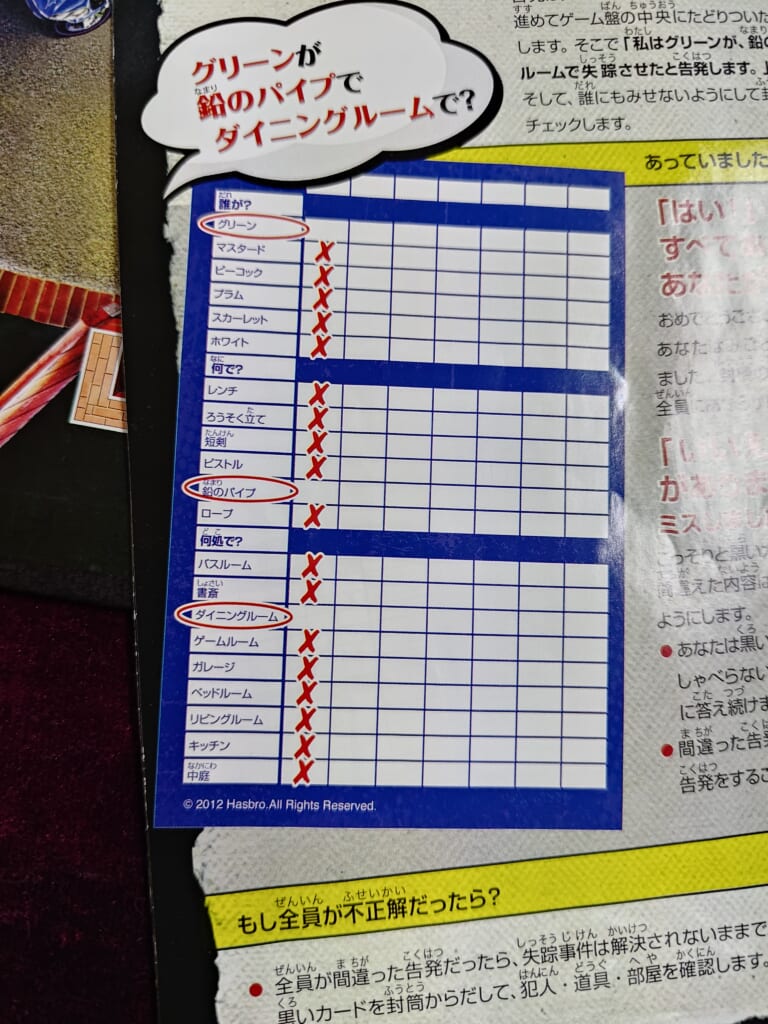 進めてゲーム盤の中央にたどりついた
します。そこで「私はグリーンが、鉛の
ルームで失踪させたと告発します。」
そして、誰にもみせないようにして封
チェックします。
グリーンが
鉛のパイプで
ダイニングルームで?
あっていました
誰が?
グリーン
マスタード
ピーコック
プラム
スカーレット
ホワイト
何で?
レンチ
ろうそく立て
短剣
ピストル
鉛のパイプ
ロープ
何処で?
バスルーム
書斎
ダイニングルーム
ゲームルーム
ガレージ
ベッドルーム
リビングルーム
キッチン
中庭
© 2012 Hasbro.All Rights Reserved.
「はい」
すべて
あなた
おめでとうござ
あなたは
ました。
全員に
ミス
こっそりと黒い
間違えた内容は
ようにします。
● あなたは黒い
しゃべらない
に答え続けま
● 間違った告発
告発をするこ
もし全員が不正解だったら?
● 全員が間違った告発だったら、失踪事件は解決されないままで
黒いカードを封筒からだして、犯人・道具・部屋を確認します。